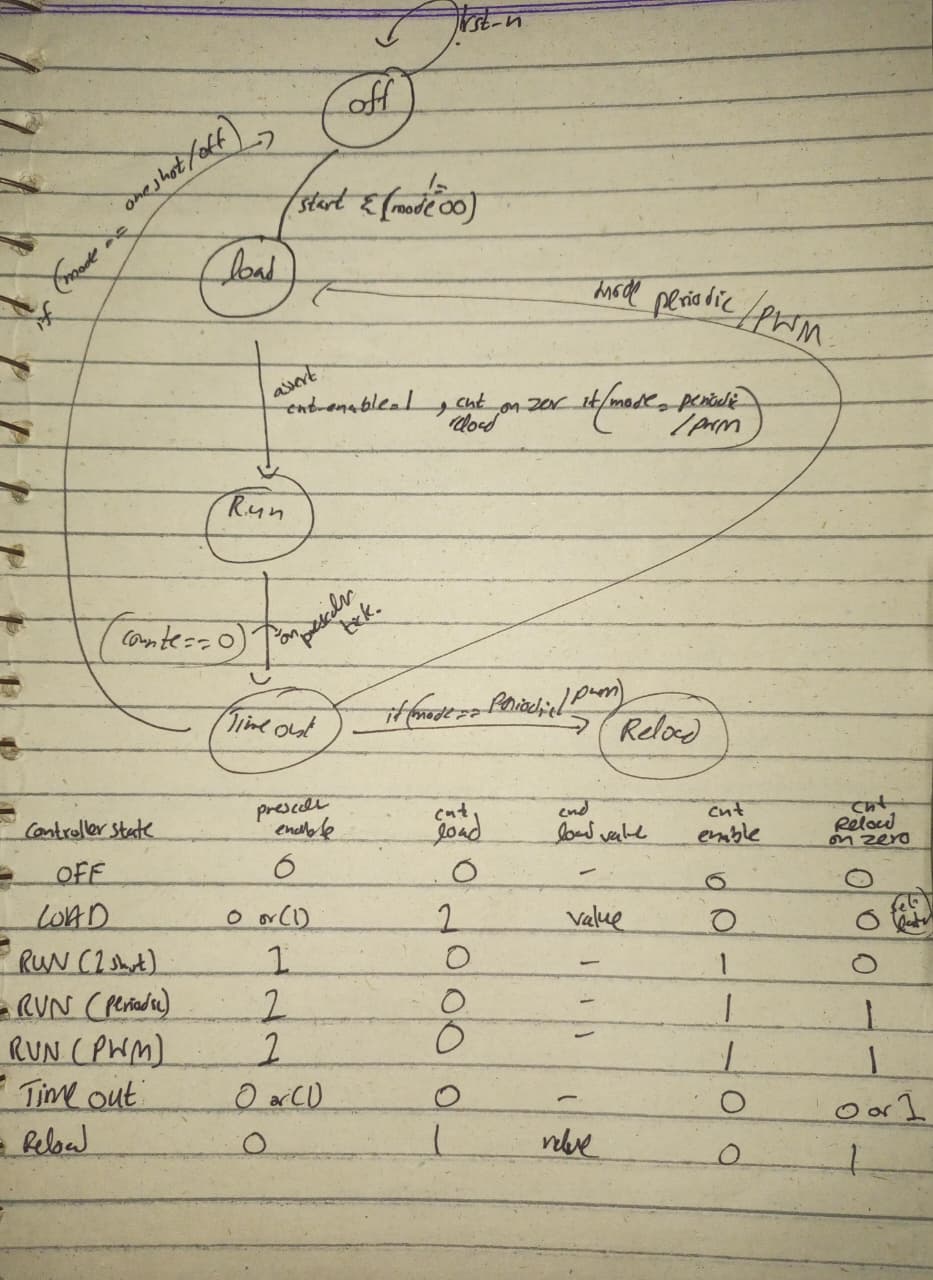 rst-n
off
if (mode == oneshot/off)
start & (mode != 00)
load
mode periodic/PWM
assert
cnt-enable=1 , cnt reload on zer if (mode = periodic
/PWM)
Run
(counte==0) on prescaler tick.
Time out
if (mode == Periodic/pwm)
Reload
Controller state prescaler enable cnt load cnd load value cnt enable cnt Reload on zero
OFF 0 0 - 0 0
LOAD 0 or (1) 1 value 0 0
RUN (1 shot) 1 0 - 1 0
RUN (Periodic) 1 0 - 1 1
RUN (PWM) 1 0 - 1 1
Time out 0 or (1) 0 - 0 0 or 1
Reload 0 1 value 0 1